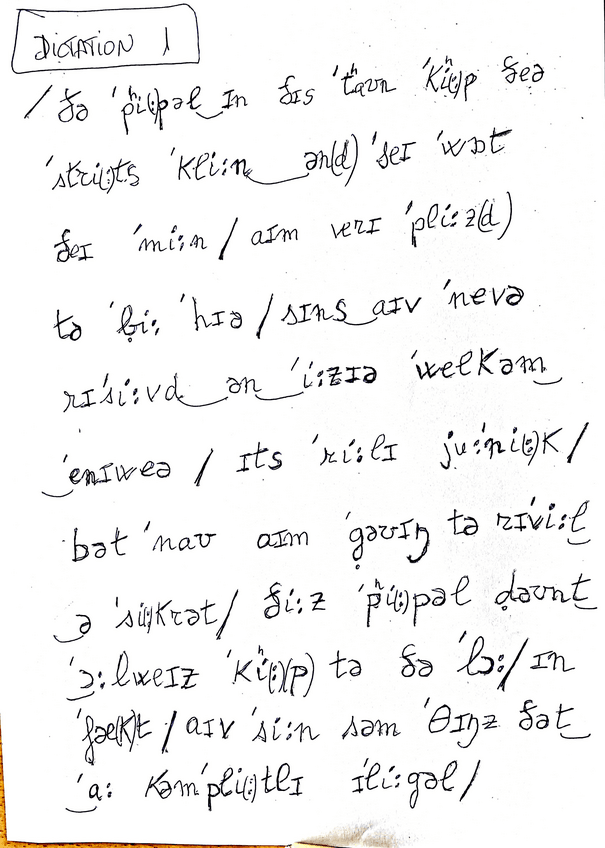 DICTATION 1
/ ðə ˈpʰi(ː)pəl‿ɪn ðɪs ˈtʰaʊn ˈkʰi(ː)p ðeə
ˈstri(ː)ts ˈkliːn‿ən(d) ˈseɪ ˈwɒt
ðeɪ ˈmiːn / aɪm verɪ ˈpliːz(d)
tə ˈb̥iː ˈhɪə / sɪns‿aɪv ˈnevə
rɪˈsiːvd‿ən‿ˈiːzɪə ˈwelkəm‿
‿ˈenɪweə / ɪts ˈriːlɪ juːˈni(ː)k /
bət ˈnaʊ aɪm ˈg̥əʊɪŋ tə rɪˈviːl‿
‿ə ˈsi(ː)krət / ðiːz ˈpʰi(ː)pəl d̥əʊnt‿
‿ˈɔːlweɪz ˈkʰi(ː)(p) tə ðə ˈlɔː / ɪn
ˈfæ(k)t / aɪv ˈsiːn səm ˈθɪŋz ðət‿
‿ˈaː kəmˈpli(ː)tlɪ ɪˈliːgəl /